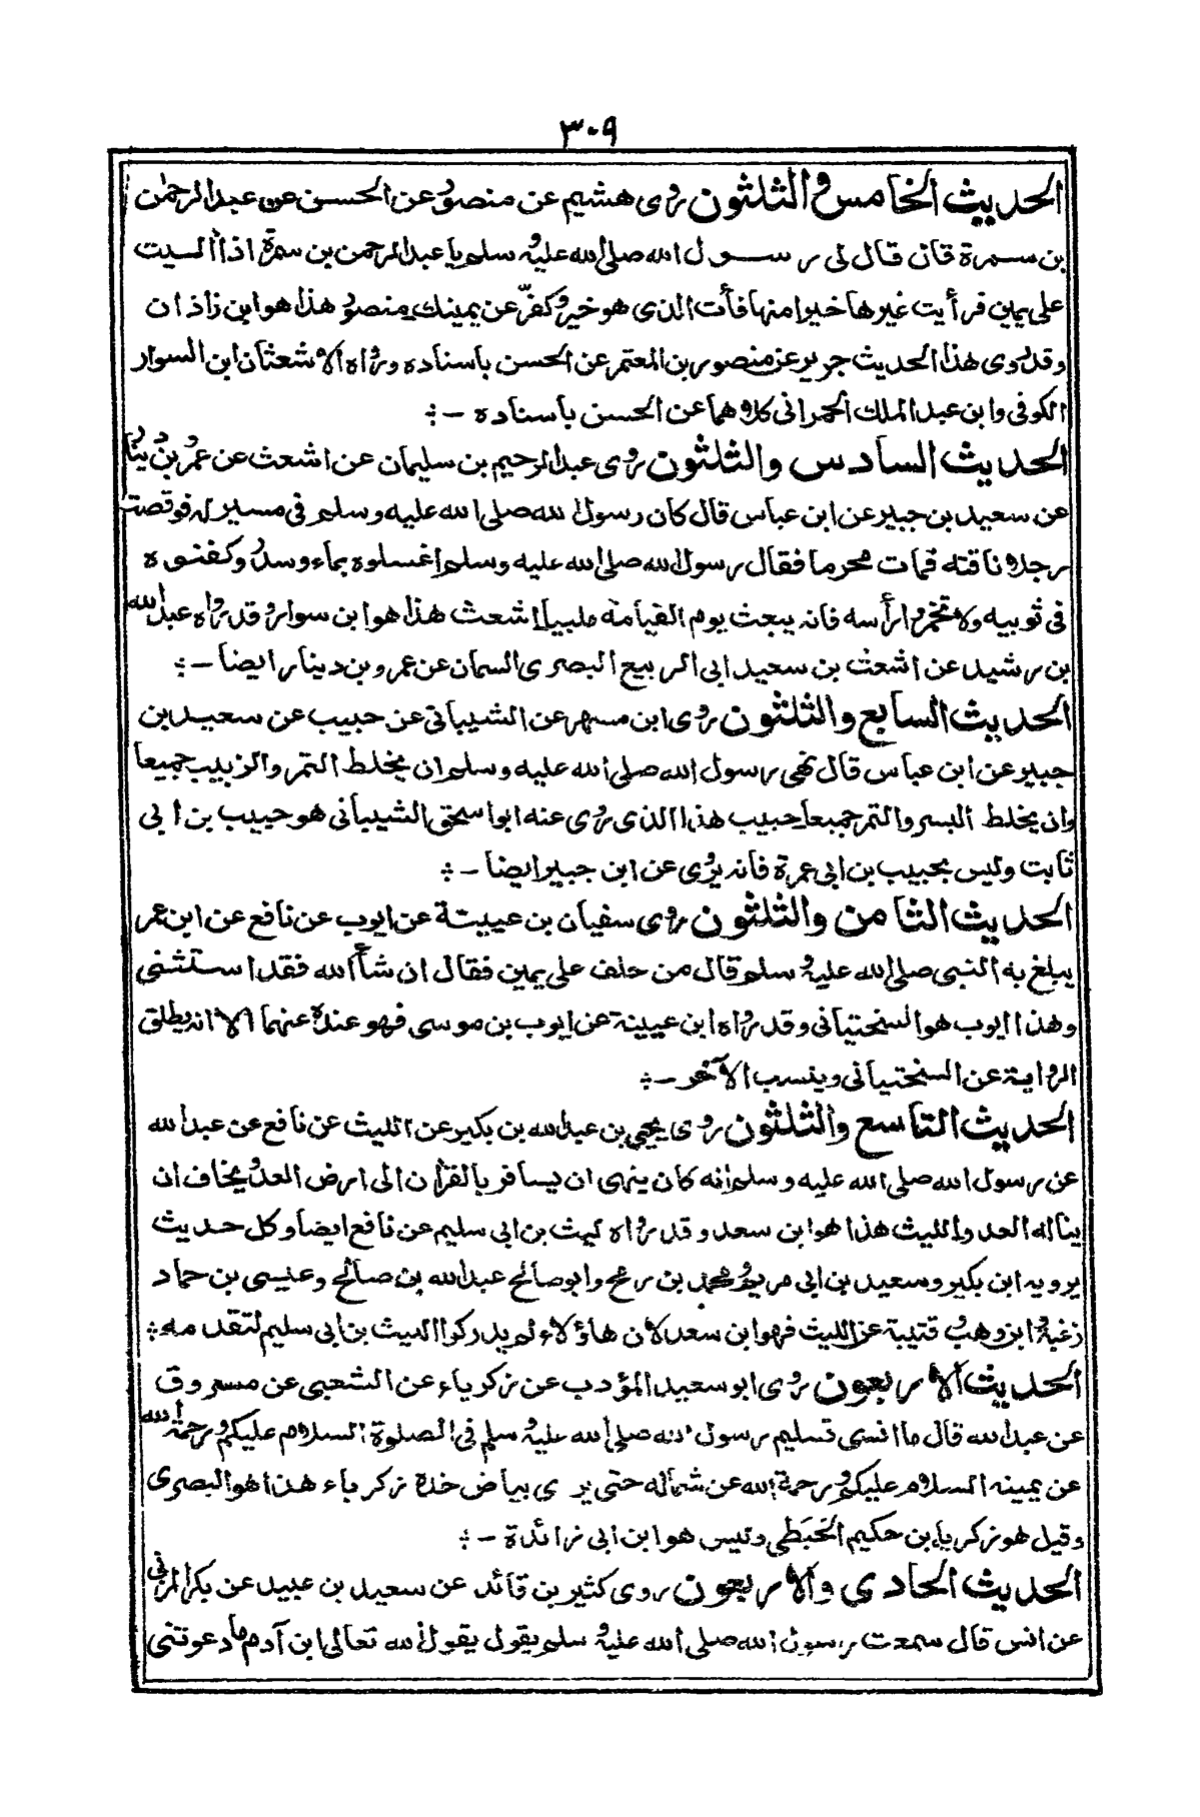 ٣٠٩
الحديث الخامس والثلثون روى هشيم عن منصور عن الحسن عن عبدالرحمٰن
بن سمرة قان قال لى رسول الله صلى الله عليه وسلم يا عبدالرحمن بن سمرة اذا اٰليت
على يمين فرأيت غيرها خيرا منها فأت الذى هو خير وكفّر عن يمينك منصور هذا هو ابن زاذان
وقد روى هذا الحديث جرير عن منصور بن المعتمر عن الحسن باسناده ورواه الاشعثان ابن السوار
الكوفى وابن عبدالملك الحمرانى كلاهما عن الحسن باسناده -:
الحديث السادس والثلثون روى عبدالرحيم بن سليمان عن اشعث عن عمرو بن دينار
عن سعيد بن جبير عن ابن عباس قال كان رسول الله صلى الله عليه وسلم فى مسير له فوقصت
رجلا ناقته فمات محرما فقال رسول الله صلى الله عليه وسلم اغسلوه بماء وسدر وكفنوه
فى ثوبيه ولا تخمروا رأسه فانه يبعث يوم القيامة ملبيا اشعث هذا هو ابن سوار وقد رواه عبدالله
بن رشيد عن اشعث بن سعيد ابى الربيع البصرى السمان عن عمرو بن دينار ايضا -:
الحديث السابع والثلثون روى ابن مسهر عن الشيبانى عن حبيب عن سعيد بن
جبير عن ابن عباس قال نهى رسول الله صلى الله عليه وسلم ان يخلط التمر والزبيب جميعا
وان يخلط البسر والتمر جميعا حبيب هذا الذى روى عنه ابو اسحق الشيبانى هو حبيب بن ابى
ثابت وليس بحبيب بن ابى عمرة فانه يروى عن ابن جبير ايضا -:
الحديث الثامن والثلثون روى سفيان بن عيينة عن ايوب عن نافع عن ابن عمر
يبلغ به النبى صلى الله عليه وسلم قال من حلف على يمين فقال ان شاء الله فقد استثنى
وهذا ايوب هو السختيانى وقد رواه ابن عيينة عن ايوب بن موسى فهو عنده عنهما الا انه يطلق
الرواية عن السختيانى وينسب الآخر -:
الحديث التاسع والثلثون روى يحيى بن عبدالله بن بكير عن الليث عن نافع عن عبدالله
عن رسول الله صلى الله عليه وسلم انه كان ينهى ان يسافر بالقرآن الى ارض العدو يخاف ان
يناله العدو الليث هذا هو ابن سعد وقد رواه ليث بن ابى سليم عن نافع ايضا وكل حديث
يرويه ابن بكير وسعيد بن ابى مريم ومحمد بن رمح وابو صالح عبدالله بن صالح وعيسى بن حماد
زغبة وابن وهب وقتيبة عن الليث فهو ابن سعد لان هاؤلاء لم يدركوا الليث بن ابى سليم لتقدمه :
الحديث الاربعون روى ابو سعيد المؤدب عن زكرياء عن الشعبى عن مسروق
عن عبدالله قال ما انسى تسليم رسول الله صلى الله عليه وسلم فى الصلوة السلام عليكم ورحمة الله
عن يمينه السلام عليكم ورحمة الله عن شماله حتى يرى بياض خده زكرياء هذا هو البصرى
وقيل هو زكريا بن حكيم الحَبَطى وليس هو ابن ابى زائدة -:
الحديث الحادى والاربعون روى كثير بن قائد عن سعيد بن عبيد عن بكر المزنى
عن انس قال سمعت رسول الله صلى الله عليه وسلم يقول يقول الله تعالى ابن آدم ما دعوتنى